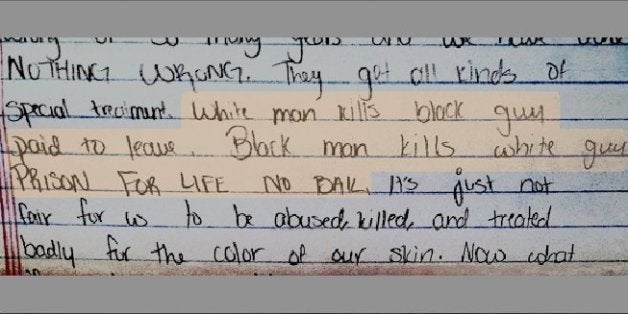 of so many years and we have done
NOTHING WRONG. They get all kinds of
special treatment. White man kills black guy
paid to leave. Black man kills white guy
PRISON FOR LIFE NO BAIL. It's just not
fair for us to be abused, killed, and treated
badly for the color of our skin. Now what